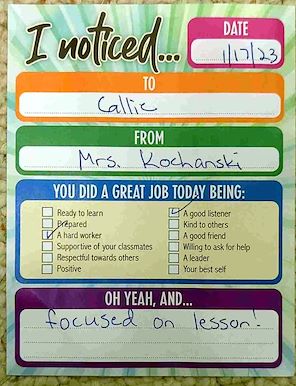 I noticed...
DATE
1/17/23
TO
Callie
FROM
Mrs. Kochanski
YOU DID A GREAT JOB TODAY BEING:
Ready to learn
Prepared
A hard worker
Supportive of your classmates
Respectful towards others
Positive
A good listener
Kind to others
A good friend
Willing to ask for help
A leader
Your best self
OH YEAH, AND...
focused on lesson!